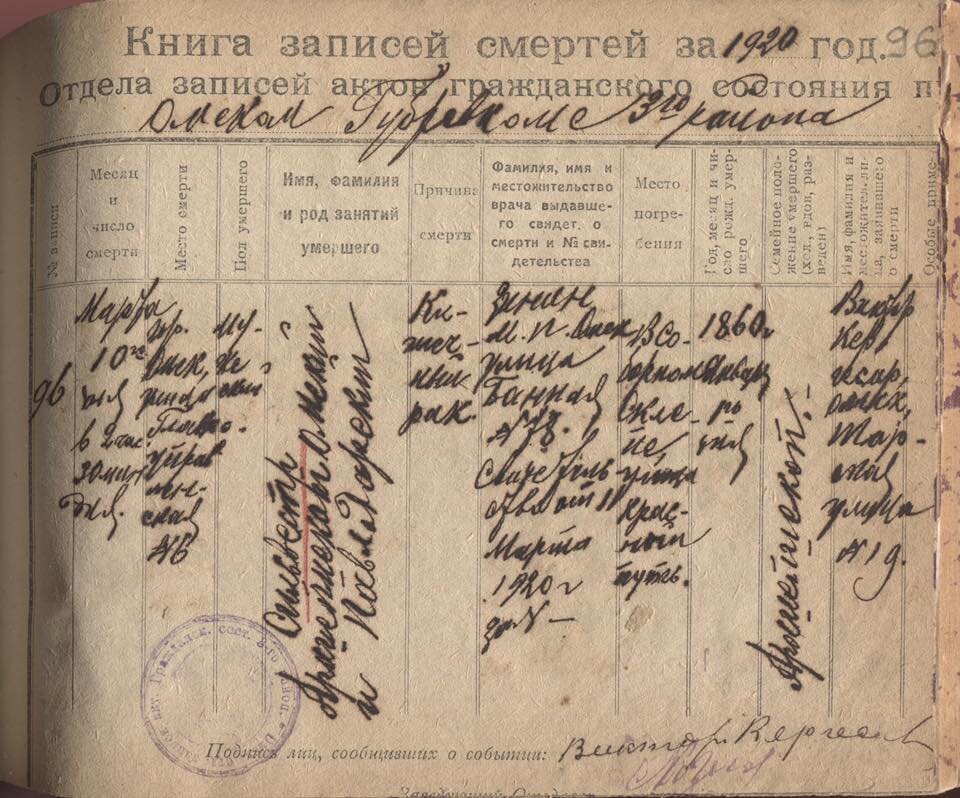 Книга записей смертей за 1920 год. 96
Отдела записей актов гражданского состояния п
Омском Губревкоме 3го района
№ записи
Месяц
и
число
смерти
Место смерти
Пол умершего
Имя, фамилия
и род занятий
умершего
Причина
смерти
Фамилия, имя и
местожительство
врача выдавше-
го свидет. о
смерти и № сви-
детельства
Место
погре-
бения
Год, месяц и чи-
сло рожд. умер-
шего
Семейное поло-
жение умершего
(хол., вдов, раз-
веден)
Имя, фамилия и
местожител. ли-
ца, заявившаго
о смерти
Особые приме-
96
Марта
10го
дня
в 2 час.
30 мин
дня.
гр.
Омск,
улица
Главно-
управ
лен-
ская
№ 6
Му-
же
ский
Сильвестр
Архиепископ Омский
и Павлодарский
рак.
Зинин
М. П. Омск
улица
Банная
№ 78.
Свидетель
ство от 11
Марта
1920 г
за № —
В со-
борном
скле-
пе,
улица
Крас-
ный
путь.
1860 г
Января
1го
дня
Архиепископ. -
Виктор
Кер
Омск,
Тар-
ская
улица
№ 19.
Подписи лиц, сообщивших о событии: Виктор